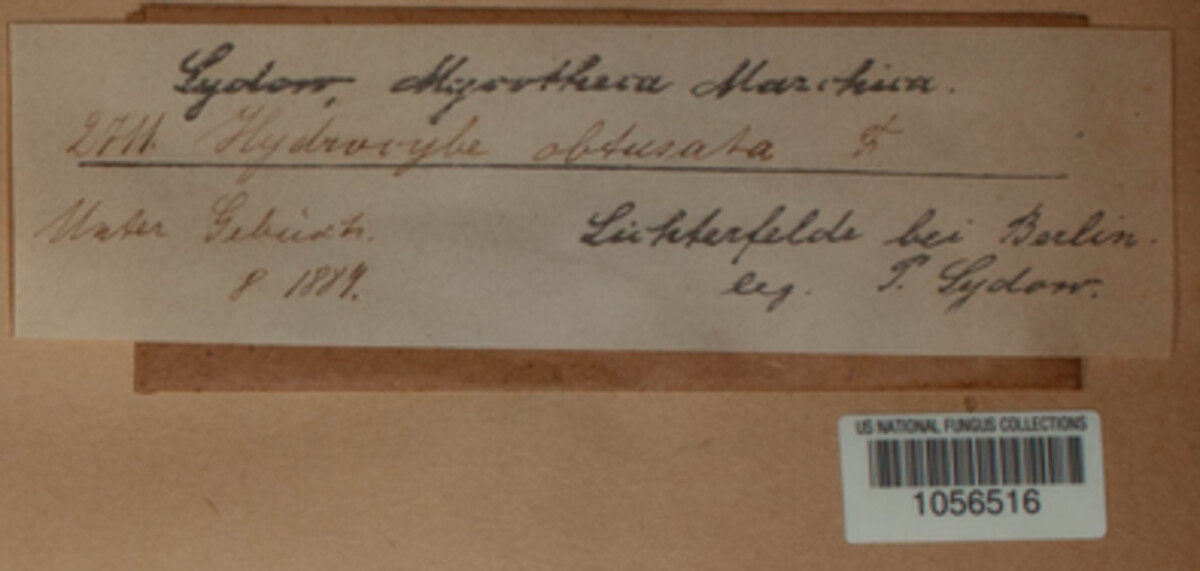 Sydow, Mycotheca Marchica.
2711. Hydrocybe obtusata Fr.
Unter Gebüsch.
8. 1889.
Lichterfelde bei Berlin.
leg. P. Sydow.
US NATIONAL FUNGUS COLLECTIONS
1056516